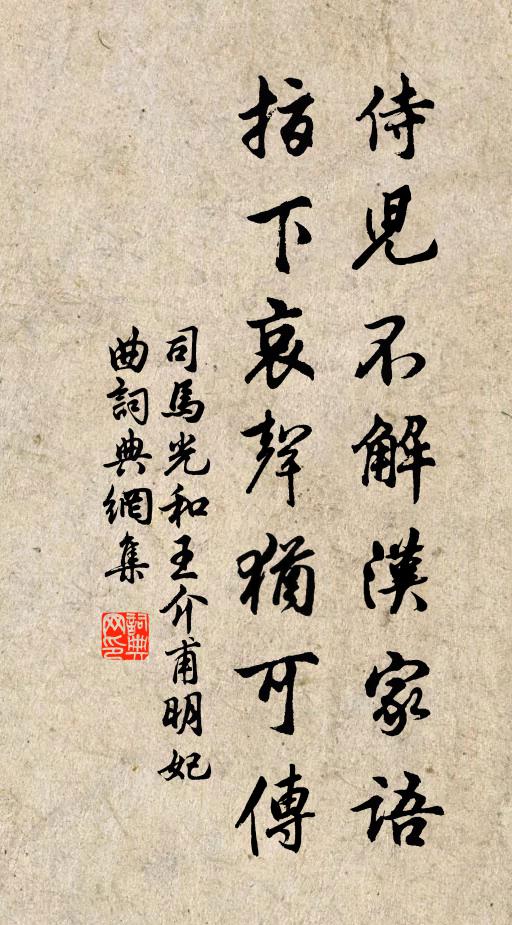 侍兒不解漢家語
指下哀聲猶可傳
司馬光和王介甫明妃
曲詞典網集
詞典
网印